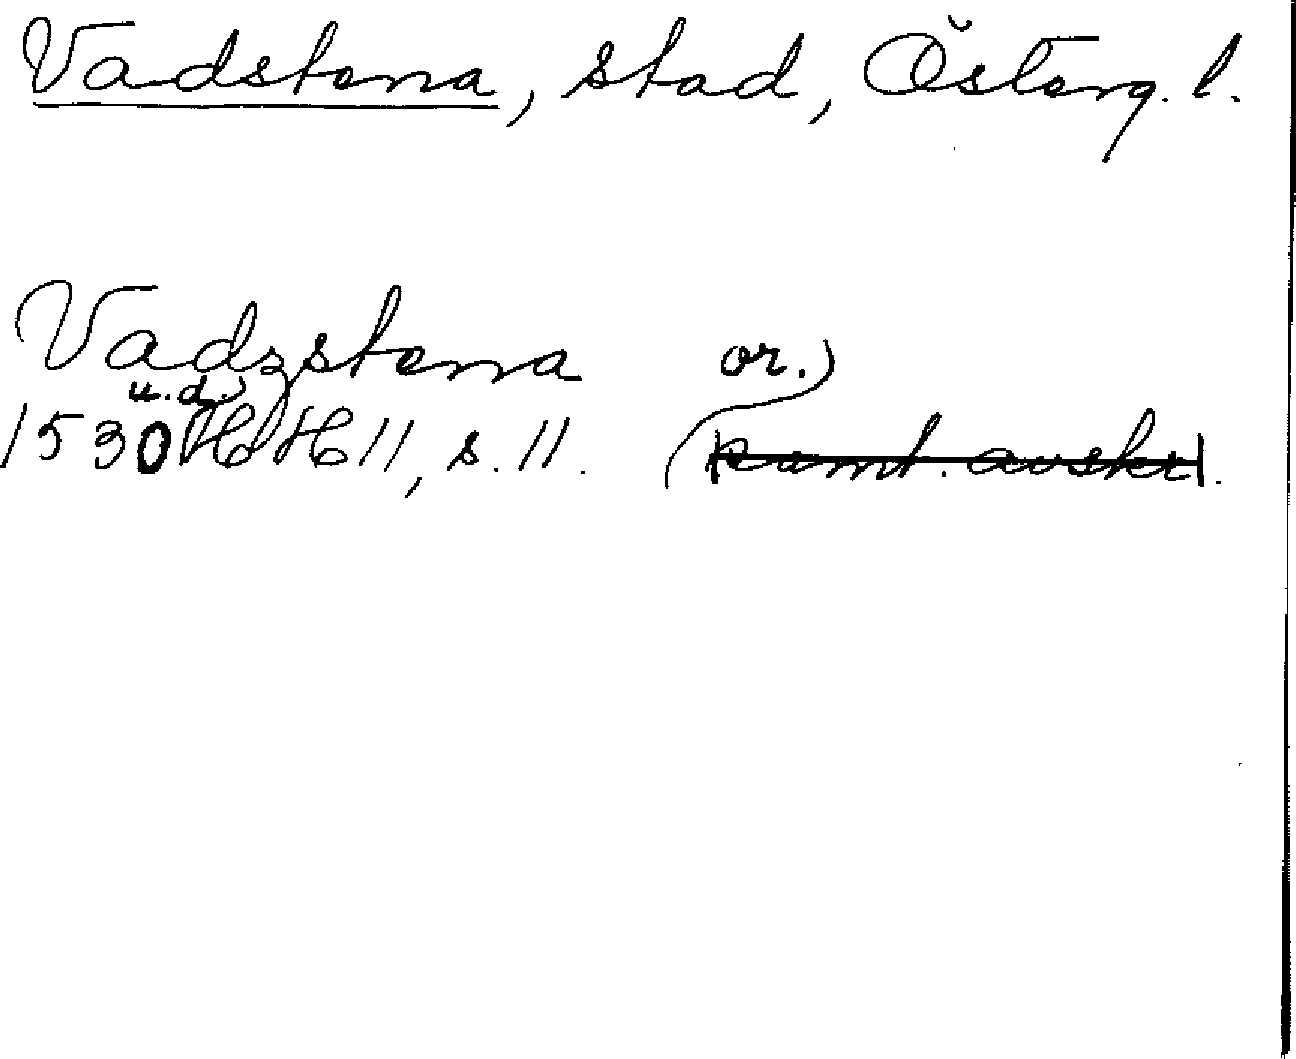 Vadstena, stad, Österg. l.
Vadzstena or.
u.d.
1530 HH 11, s. 11. (samt. avskr.